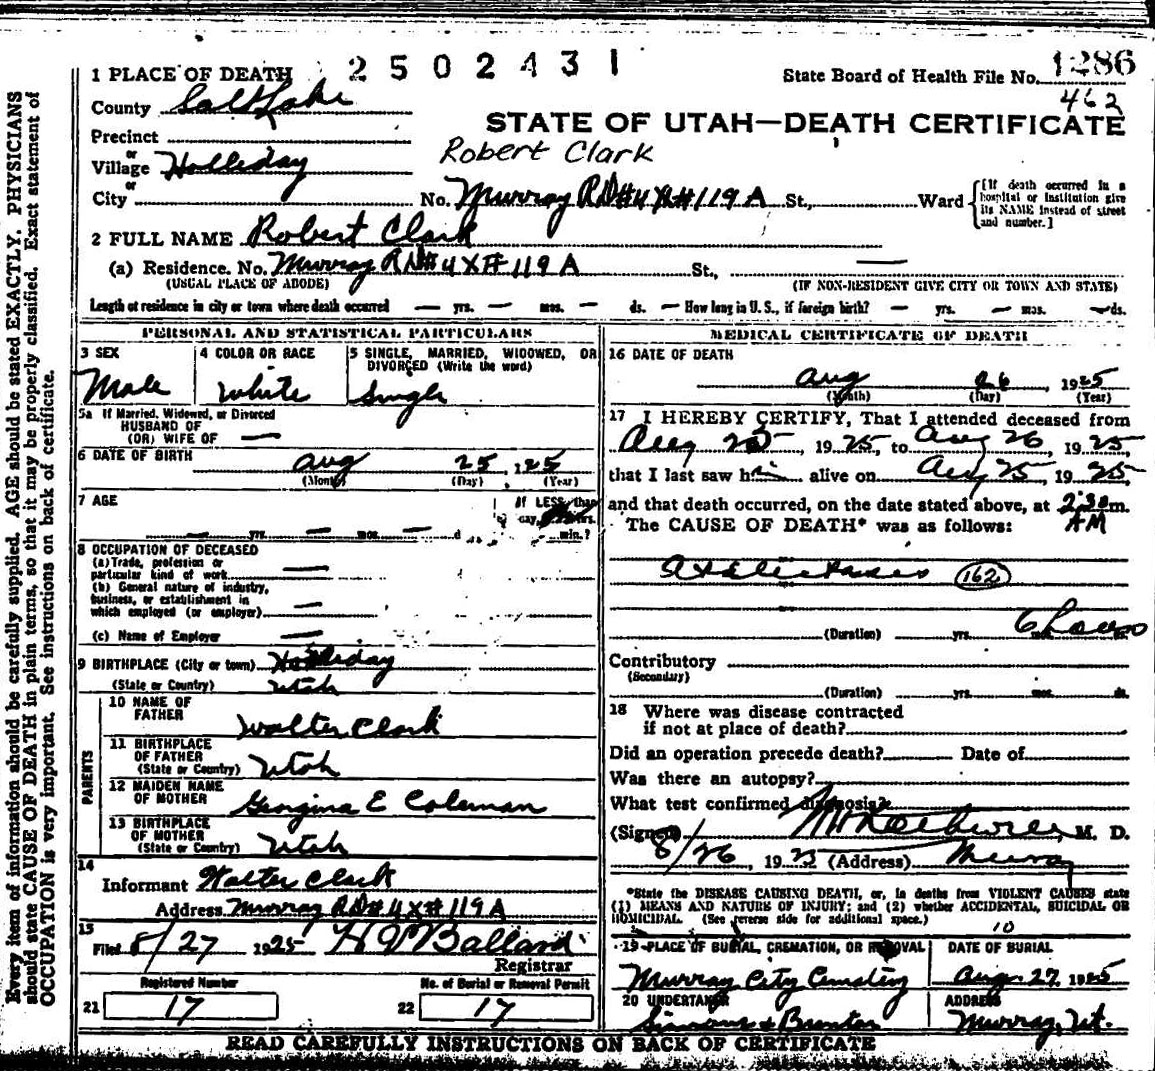 2502431
1286
1 PLACE OF DEATH
State Board of Health File No.
462
County Salt Lake
STATE OF UTAH—DEATH CERTIFICATE
Precinct
or
Robert Clark
Village Holliday
or
City No. Murray RD#4 X#119A St., Ward
[If death occurred in a hospital or institution give its NAME instead of street and number.]
2 FULL NAME Robert Clark
(a) Residence. No. Murray RD#4 X#119A St.,
(USUAL PLACE OF ABODE) (IF NON-RESIDENT GIVE CITY OR TOWN AND STATE)
Length of residence in city or town where death occurred — yrs. — mos. — ds. — How long in U. S., if foreign birth? — yrs. — mos. — ds.
PERSONAL AND STATISTICAL PARTICULARS
3 SEX
Male
4 COLOR OR RACE
White
5 SINGLE, MARRIED, WIDOWED, OR DIVORCED (Write the word)
Single
5a If Married, Widowed, or Divorced
HUSBAND OF
(OR) WIFE OF —
6 DATE OF BIRTH Aug 25, 1925
(Month) (Day) (Year)
7 AGE
If LESS than
— yrs. — mos. min.?
8 OCCUPATION OF DECEASED
(a) Trade, profession or
particular kind of work —
(b) General nature of industry,
business, or establishment in
which employed (or employer) —
(c) Name of Employer —
9 BIRTHPLACE (City or town) Holliday
(State or Country) Utah
PARENTS
10 NAME OF FATHER
Walter Clark
11 BIRTHPLACE OF FATHER
(State or Country) Utah
12 MAIDEN NAME OF MOTHER
Georgina E Coleman
13 BIRTHPLACE OF MOTHER
(State or Country) Utah
14
Informant Walter Clark
Address Murray RD#4 X#119A
15
Filed 8/27 1925 H V Ballard
Registrar
Registered Number
21 17
No. of Burial or Removal Permit
22 17
MEDICAL CERTIFICATE OF DEATH
16 DATE OF DEATH
Aug 26, 1925
(Month) (Day) (Year)
17 I HEREBY CERTIFY, That I attended deceased from
Aug 25, 1925, to Aug 26, 1925,
that I last saw him alive on Aug 25, 1925,
and that death occurred, on the date stated above, at 2:30 m.
AM
The CAUSE OF DEATH* was as follows:
Atelectasis 162
(Duration) yrs. mos. 6 hours
Contributory
(Secondary)
(Duration) yrs. mos. ds.
18 Where was disease contracted
if not at place of death?
Did an operation precede death? Date of
Was there an autopsy?
What test confirmed diagnosis?
(Signed) M. D.
8/26, 1925 (Address) Murray
*State the DISEASE CAUSING DEATH, or, in deaths from VIOLENT CAUSES state
(1) MEANS AND NATURE OF INJURY; and (2) whether ACCIDENTAL, SUICIDAL OR
HOMICIDAL. (See reverse side for additional space.)
10
19 PLACE OF BURIAL, CREMATION, OR REMOVAL
Murray City Cemetery
DATE OF BURIAL
Aug. 27, 1925
20 UNDERTAKER
Simmons & Brunton
ADDRESS
Murray, Ut.
READ CAREFULLY INSTRUCTIONS ON BACK OF CERTIFICATE
Every item of information should be carefully supplied. AGE should be stated EXACTLY. PHYSICIANS
should state CAUSE OF DEATH in plain terms, so that it may be properly classified. Exact statement of
OCCUPATION is very important. See instructions on back of certificate.